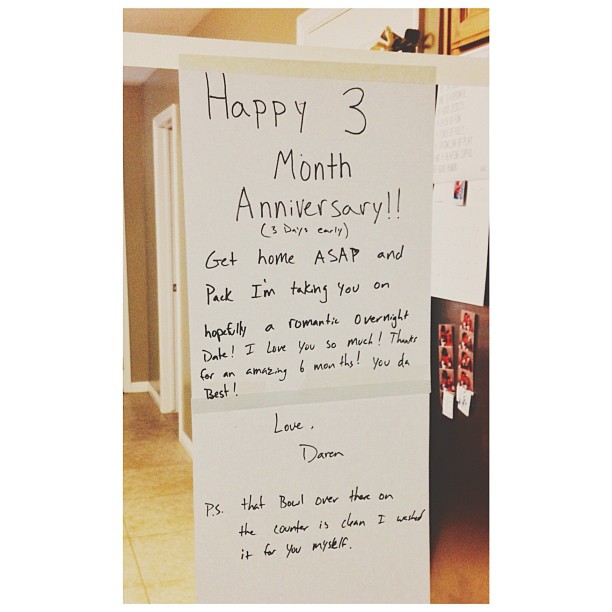 Happy 3
Month
Anniversary!!
(3 Days early)
Get home ASAP and
Pack I'm taking you on
hopefully a romantic overnight
Date! I Love you so much! Thanks
for an amazing 6 months! you da
Best!
Love,
Daren
P.S. that Bowl over there on
the counter is clean I washed
it for you myself.